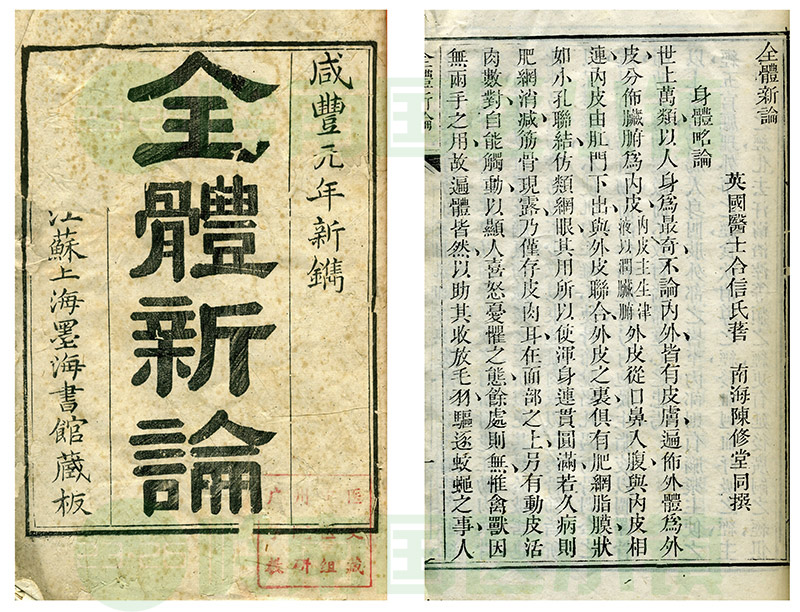 咸豐元年新鐫
全體新論
江蘇上海墨海書館藏板
全體新論
英國醫士合信氏著 南海陳修堂同撰
身體略論
世上萬類以人身爲最奇、不論內外皆有皮膚、遍佈外體爲外
皮、分佈臟腑爲內皮、內皮主生津液以潤臟腑外皮從口鼻入腹、與內皮相
連、內皮由肛門下出、與外皮聯合、外皮之裏、俱有肥網脂膜、狀
如小孔聯結、仿類網眼、其用所以使渾身連貫圓滿、若久病則
肥網消減、筋骨現露、乃僅存皮肉耳、在面部之上、另有動皮活
肉數對、自能觸動、以顯人喜怒憂懼之態、餘處則無、惟禽獸因
無兩手之用、故遍體皆然、以助其收放毛羽、驅逐蚊蠅之事、人
全體新論
一